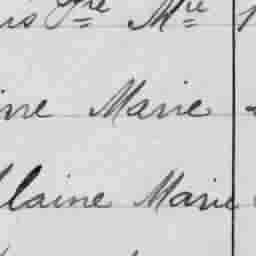 is Gre Mie
ne Marie
laine Marie